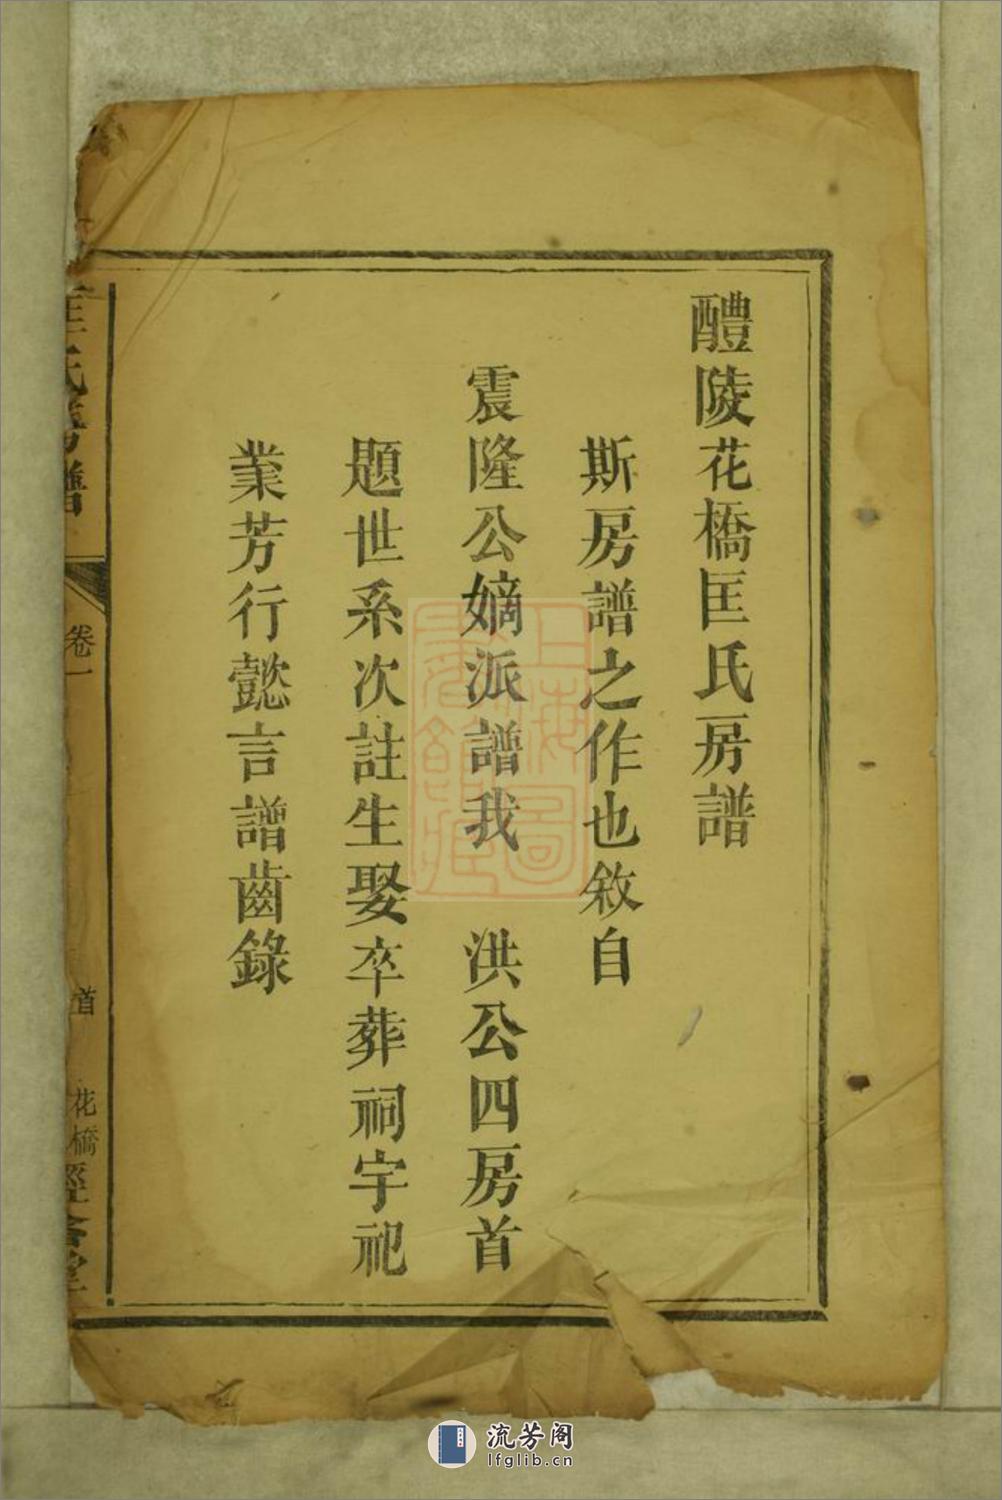 醴陵花橋匡氏房譜
斯房譜之作也敘自
震隆公嫡派譜我　洪公四房首
題世系次註生娶卒葬祠宇祀
業芳行懿言譜齒錄
匡氏房譜
卷一
首
花橋
上海圖
書館藏
流芳阁
lfglib.cn